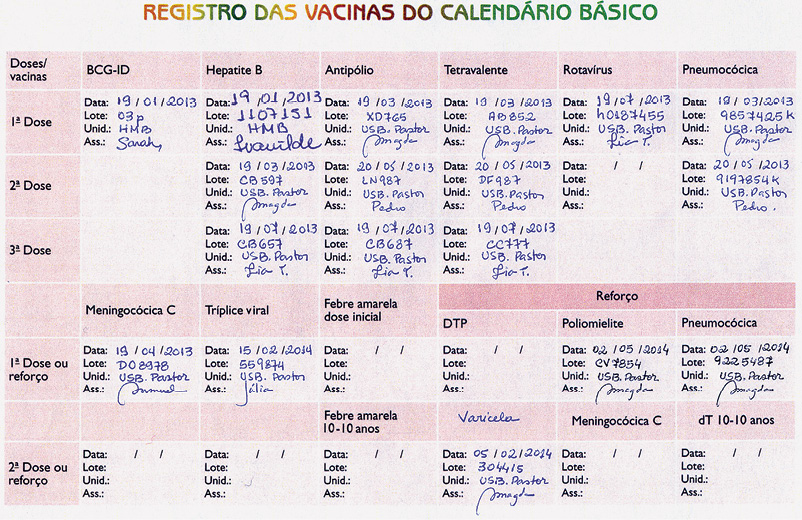 REGISTRO DAS VACINAS DO CALENDÁRIO BÁSICO
Doses/ vacinas BCG-ID Hepatite B Antipólio Tetravalente Rotavírus Pneumocócica
1ª Dose
Data: 19/01/2013 Data: 19/01/2013 Data: 19/03/2013 Data: 19/03/2013 Data: 19/07/2013 Data: 19/03/2013
Lote: 03p Lote: 1107151 Lote: XD765 Lote: AB852 Lote: h0187455 Lote: 9857425k
Unid.: HMB Unid.: HMB Unid.: USB. Pastor Unid.: USB. Pastor Unid.: USB. Pastor Unid.: USB. Pastor
Ass.: Sarah Ass.: Ass.: Magda Ass.: Magda Ass.: Lia T. Ass.: Magda
2ª Dose
Data: 19/03/2013 Data: 20/05/2013 Data: 20/05/2013 Data: / / Data: 20/05/2013
Lote: CB597 Lote: LN987 Lote: DF987 Lote: Lote: 9197854k
Unid.: USB. Pastor Unid.: USB. Pastor Unid.: USB. Pastor Unid.: Unid.: USB. Pastor
Ass.: Magda Ass.: Pedro Ass.: Pedro Ass.: Ass.: Pedro.
3ª Dose
Data: 19/07/2013 Data: 19/07/2013 Data: 19/07/2013
Lote: CB657 Lote: CB687 Lote: CC777
Unid.: USB. Pastor Unid.: USB. Pastor Unid.: USB. Pastor
Ass.: Lia T. Ass.: Lia T. Ass.: Lia T.
Reforço
Meningocócica C Tríplice viral Febre amarela dose inicial DTP Poliomielite Pneumocócica
1ª Dose ou reforço
Data: 19/04/2013 Data: 15/02/2014 Data: / / Data: / / Data: 02/05/2014 Data: 02/05/2014
Lote: D08978 Lote: 559874 Lote: Lote: Lote: CV7854 Lote: 9225487
Unid.: USB. Pastor Unid.: USB. Pastor Unid.: Unid.: Unid.: USB. Pastor Unid.: USB. Pastor
Ass.: Ass.: Júlia Ass.: Ass.: Ass.: Magda Ass.: Magda
Febre amarela 10-10 anos Varicela Meningocócica C dT 10-10 anos
2ª Dose ou reforço
Data: / / Data: / / Data: / / Data: 05/02/2014 Data: / / Data: / /
Lote: Lote: Lote: Lote: 304415 Lote: Lote:
Unid.: Unid.: Unid.: Unid.: USB. Pastor Unid.: Unid.:
Ass.: Ass.: Ass.: Ass.: Magda Ass.: Ass.: